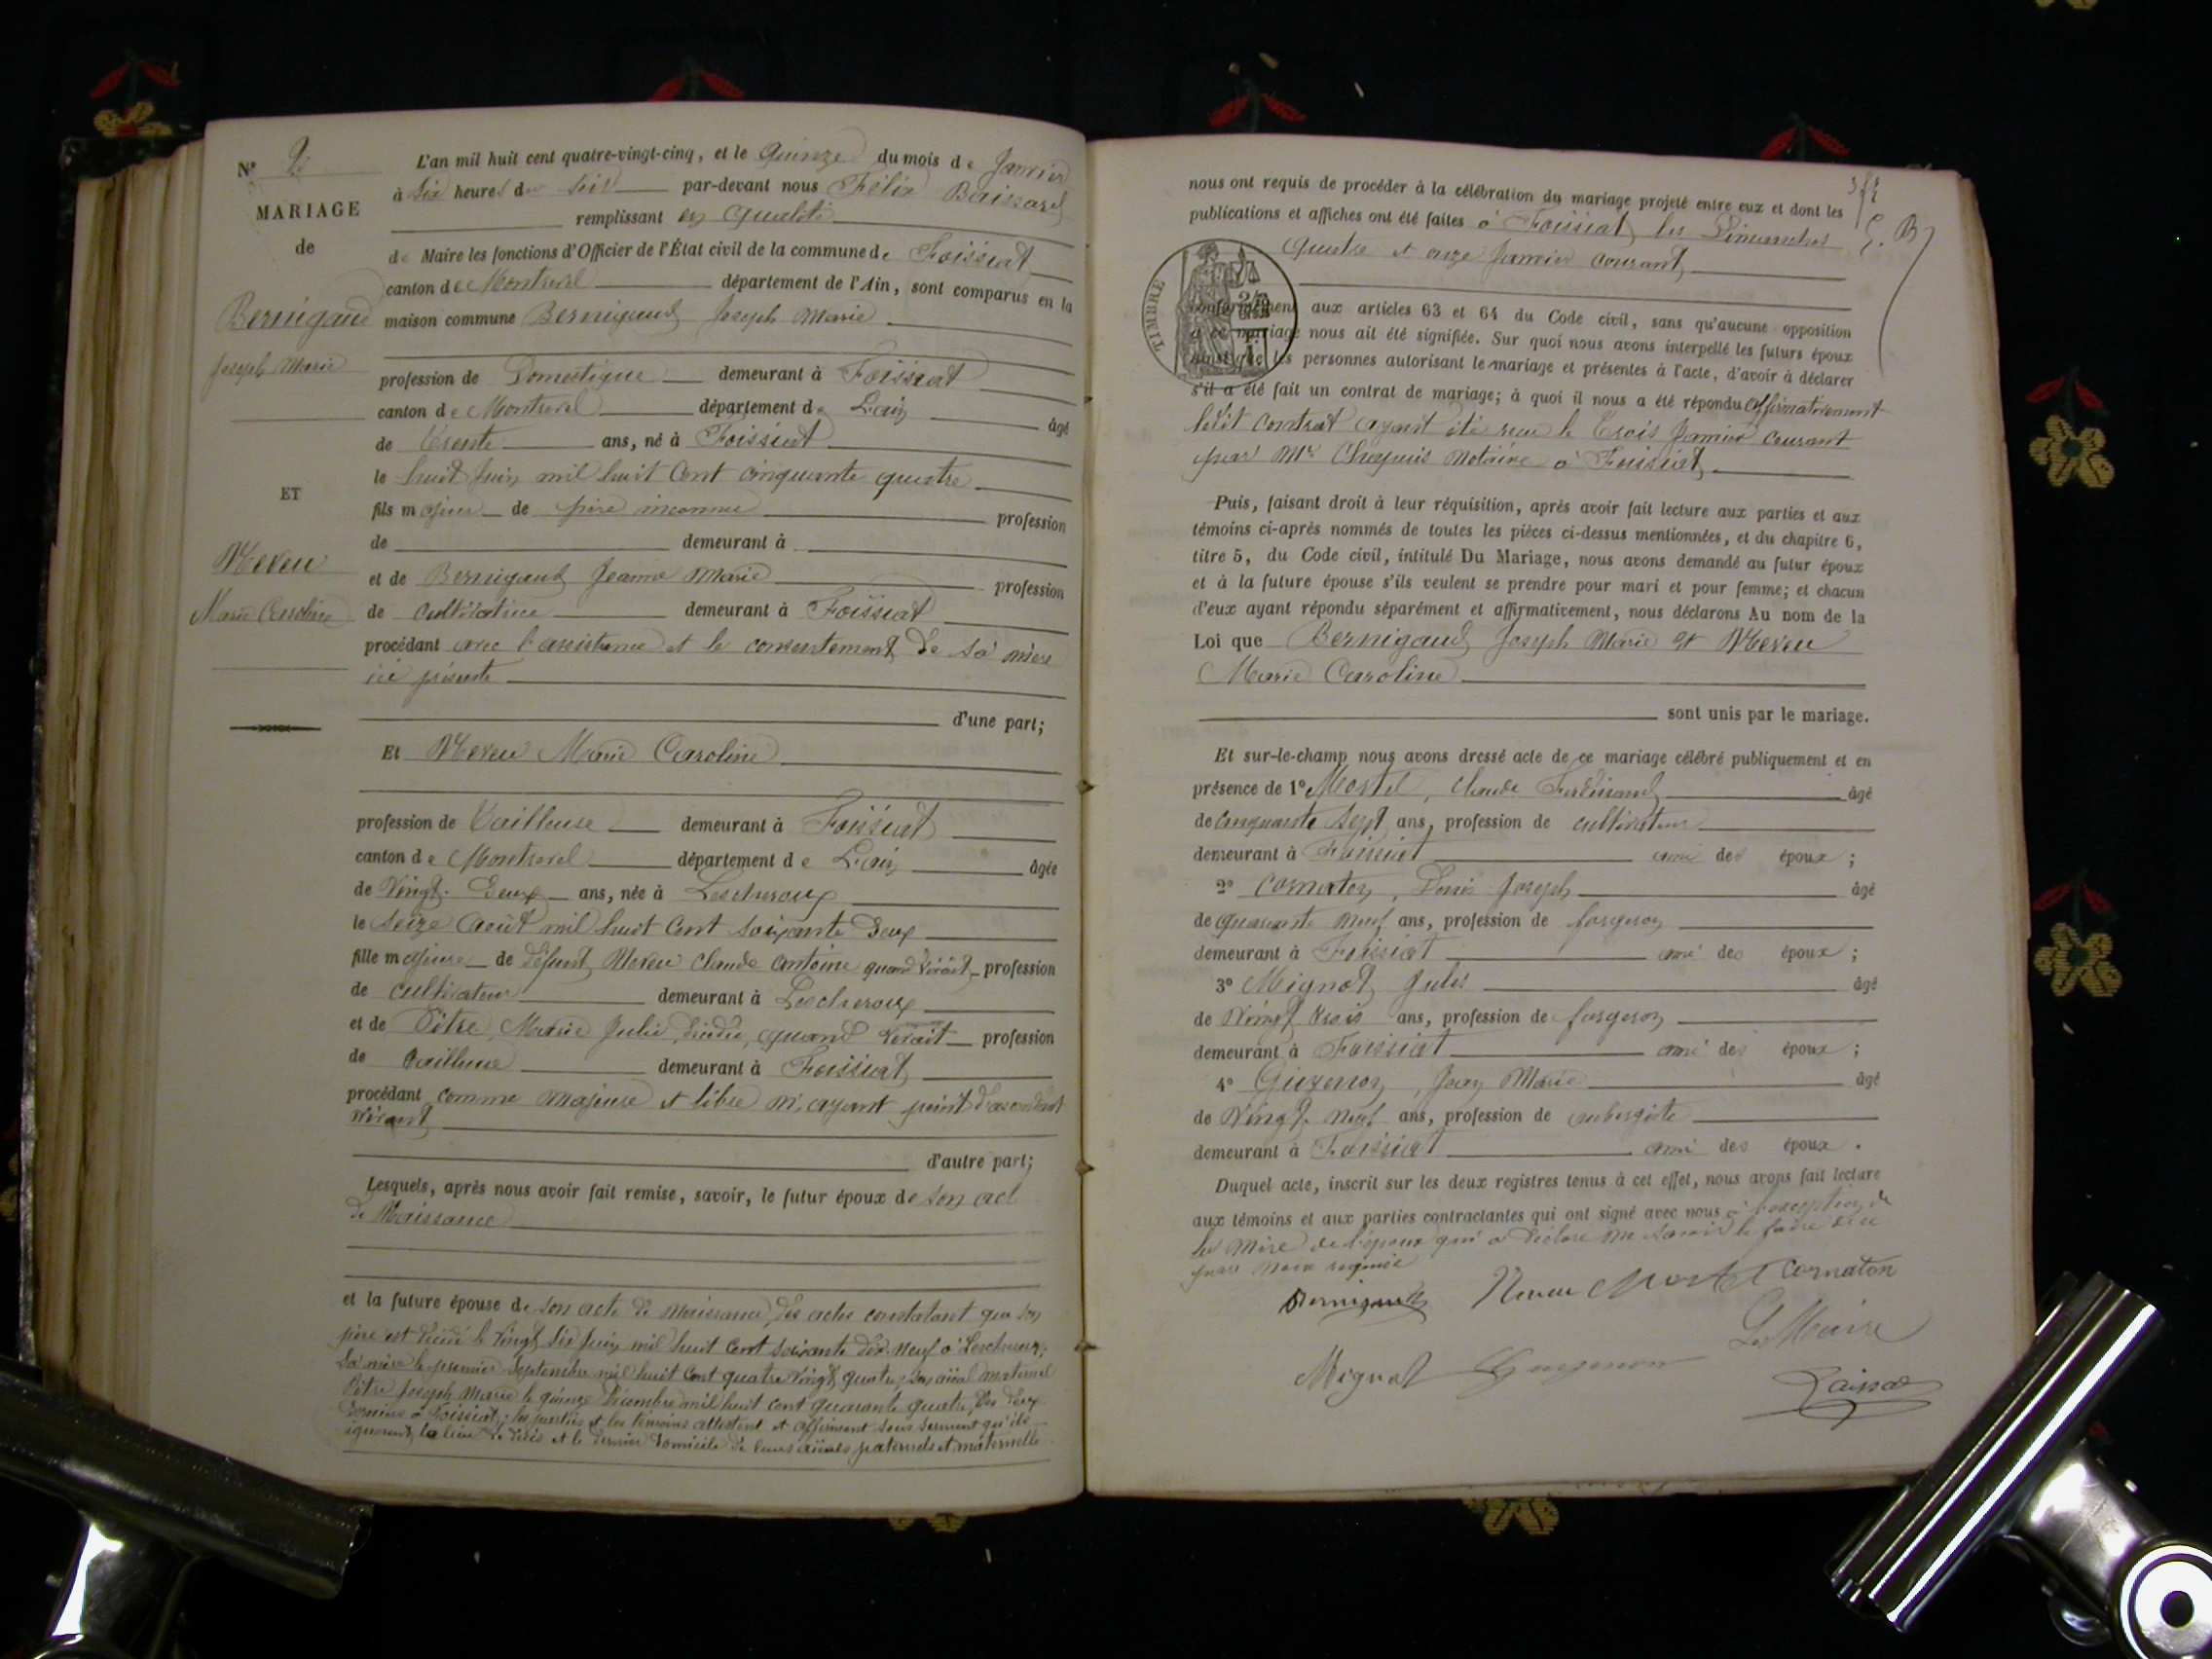 N° 2
MARIAGE
de
Bernigaud
Joseph Marie
ET
Neveu
Marie Caroline
L'an mil huit cent quatre-vingt-cinq, et le Quinze du mois de Janvier
à Six heures du Soir par-devant nous Félix Baissard
remplissant en qualité
de Maire les fonctions d'Officier de l'État civil de la commune de Foissiat
canton de Montrevel département de l'Ain, sont comparus en la
maison commune Bernigaud Joseph Marie
profession de Domestique demeurant à Foissiat
canton de Montrevel département de L'ain âgé
de Trente ans, né à Foissiat
le huit Juin mil huit Cent cinquante quatre
fils majeur de père inconnu profession
de demeurant à
et de Bernigaud Jeanne Marie profession
de cultivatrice demeurant à Foissiat
procédant avec l'assistance et le consentement de sa mère
ici présente
d'une part;
Et Neveu Marie Caroline
profession de Tailleuse demeurant à Foissiat
canton de Montrevel département de L'ain âgée
de Vingt-Deux ans, née à Lescheroux
le Seize Août mil huit Cent soixante Deux
fille majeure de défunt Neveu Claude Antoine quand vivait profession
de cultivateur demeurant à Lescheroux
et de Pitre Marie Julie, quand vivait profession
de Tailleuse demeurant à Foissiat
procédant comme majeure et libre n'ayant point d'ascendant
vivant
d'autre part;
Lesquels, après nous avoir fait remise, savoir, le futur époux de son act
de Naissance
et la future épouse de son acte de naissance, des actes constatant que son
père est décédé le vingt six Juin mil huit Cent soixante dix-neuf à Lescheroux;
Sa mère le premier Septembre mil huit Cent quatre vingt quatre, son aïeul maternel
Pitre Joseph Marie le quinze Décembre mil huit cent quarante quatre, les deux
derniers à Foissiat; les parties et les témoins attestent et affirment sous serment qu'ils
ignorent le lieu de décès et le dernier domicile de leurs aïeuls paternels et maternelle
nous ont requis de procéder à la célébration du mariage projeté entre eux et dont les
publications et affiches ont été faites à Foissiat les Dimanches
quatre et onze Janvier courant
TIMBRE
conformément aux articles 63 et 64 du Code civil, sans qu'aucune opposition
à ce mariage nous ait été signifiée. Sur quoi nous avons interpellé les futurs époux
ainsi que les personnes autorisant le mariage et présentes à l'acte, d'avoir à déclarer
s'il a été fait un contrat de mariage; à quoi il nous a été répondu affirmativement
ledit contrat ayant été reçu le Trois Janvier courant
par Me Chapuis Notaire à Foissiat
Puis, faisant droit à leur réquisition, après avoir fait lecture aux parties et aux
témoins ci-après nommés de toutes les pièces ci-dessus mentionnées, et du chapitre 6,
titre 5, du Code civil, intitulé Du Mariage, nous avons demandé au futur époux
et à la future épouse s'ils veulent se prendre pour mari et pour femme; et chacun
d'eux ayant répondu séparément et affirmativement, nous déclarons Au nom de la
Loi que Bernigaud Joseph Marie et Neveu
Marie Caroline
sont unis par le mariage.
Et sur-le-champ nous avons dressé acte de ce mariage célébré publiquement et en
présence de 1° Mortel, Claude Ferdinand âgé
de cinquante sept ans, profession de cultivateur
demeurant à Foissiat ami des époux ;
2° Cornaton, Denis Joseph âgé
de quarante neuf ans, profession de forgeron
demeurant à Foissiat ami des époux ;
3° Mignot Jules âgé
de Vingt trois ans, profession de forgeron
demeurant à Foissiat ami des époux ;
4° Guyenon, Jean Marie âgé
de Vingt-neuf ans, profession de aubergiste
demeurant à Foissiat ami des époux .
Duquel acte, inscrit sur les deux registres tenus à cet effet, nous avons fait lecture
aux témoins et aux parties contractantes qui ont signé avec nous à l'exception de
la mère de l'époux qui a déclaré ne savoir le faire de ce
par nous requise
Bernigaud Neveu Mortel Cornaton
Le Maire
Mignot Guyenon
Baissard